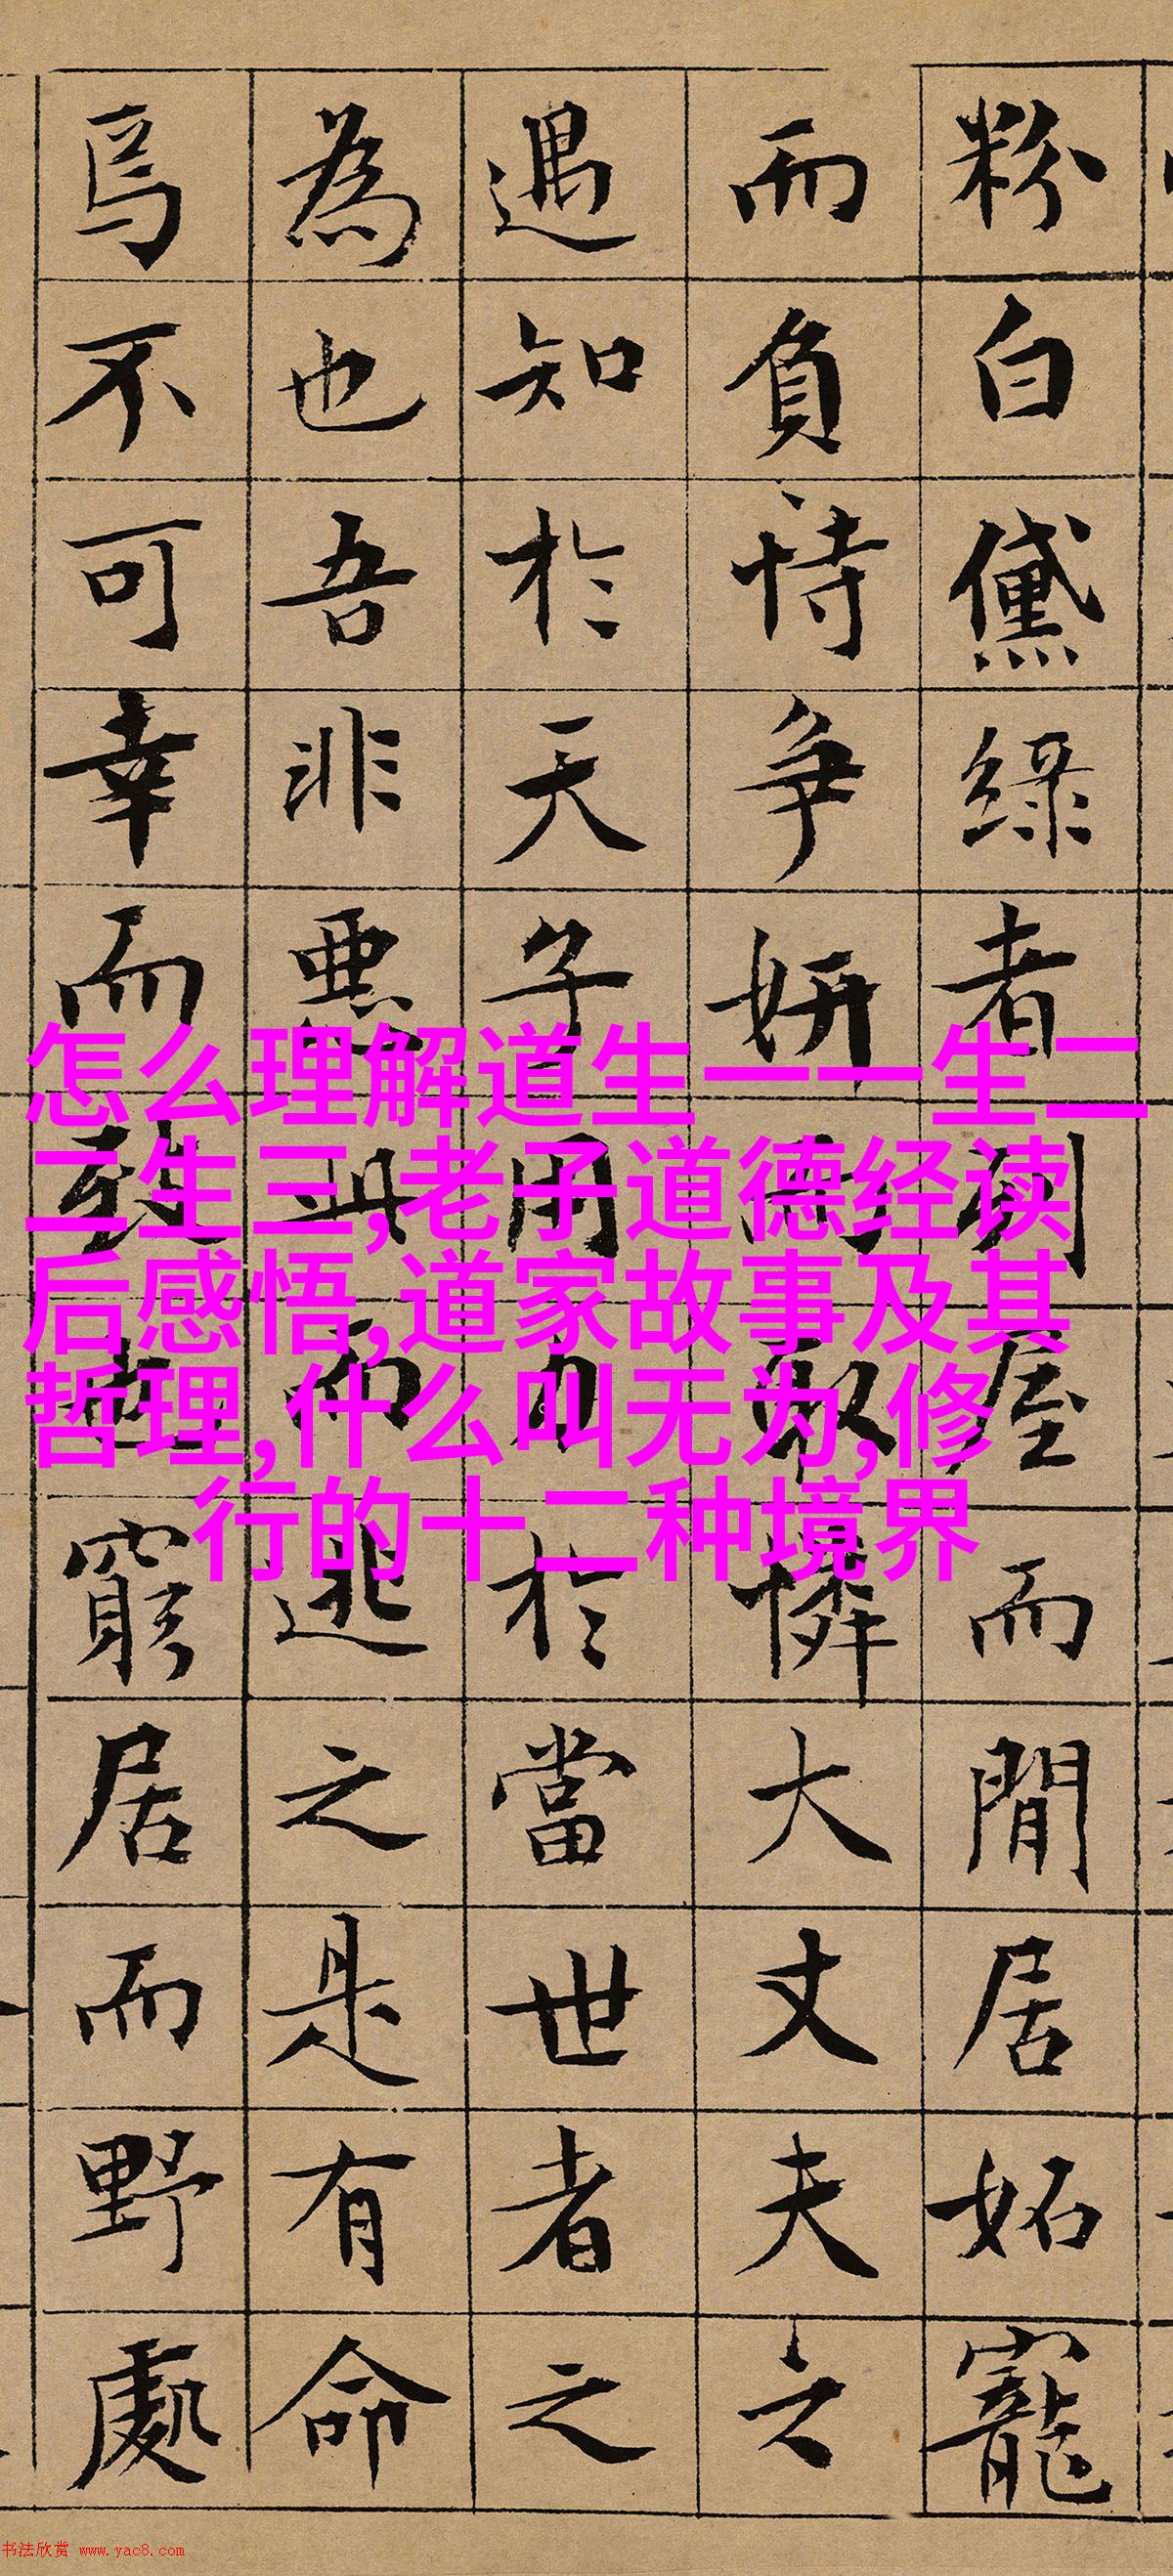 粉白黛綠者列屋而閒居妬寵
而負恃爭妍而取憐大丈夫之
遇知於天子用力於當世者之
為也吾非惡此而逃之是有命
焉不可幸而致也窮居而野處
怎么理解道生一一生二
二生三,老子道德经读
后感悟,道家故事及其
哲理,什么叫无为,修
行的十二种境界
书法欣赏 www.yac8.com